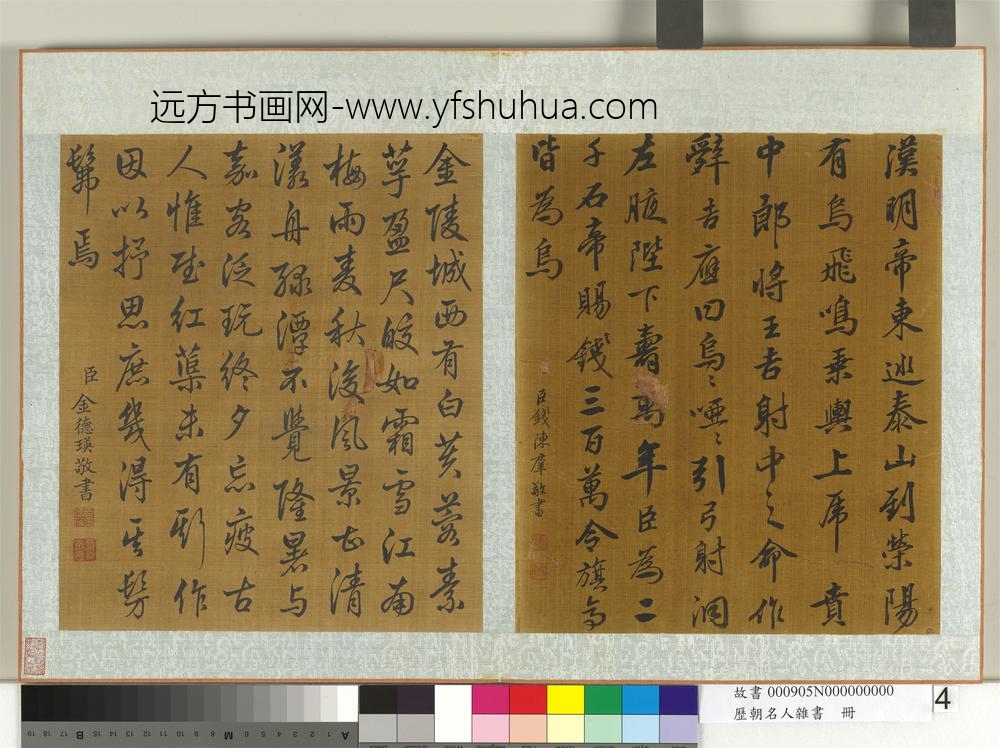 远方书画网-www.yfshuhua.com
漢明帝東巡泰山到滎陽
有烏飛鳴乘輿上虎賁
中郎將王吉射中之命作
辭吉應曰烏〻啞〻引弓射洞
左腋陛下壽萬年臣為二
千石帝賜錢三百萬令
皆為烏
臣錢陳羣敬書
金陵城西有白芙蓉素
萼盈尺皎如霜雪江南
梅雨麥秋後風景甚清
漾舟綠潭不覺隆暑与
嘉客泛玩終夕忘疲古
人惟賦紅蕖未有斯作
因以抒思庶幾得其髣
髴焉
臣金德瑛敬書
故書 000905N000000000
歷朝名人雜書 冊
4